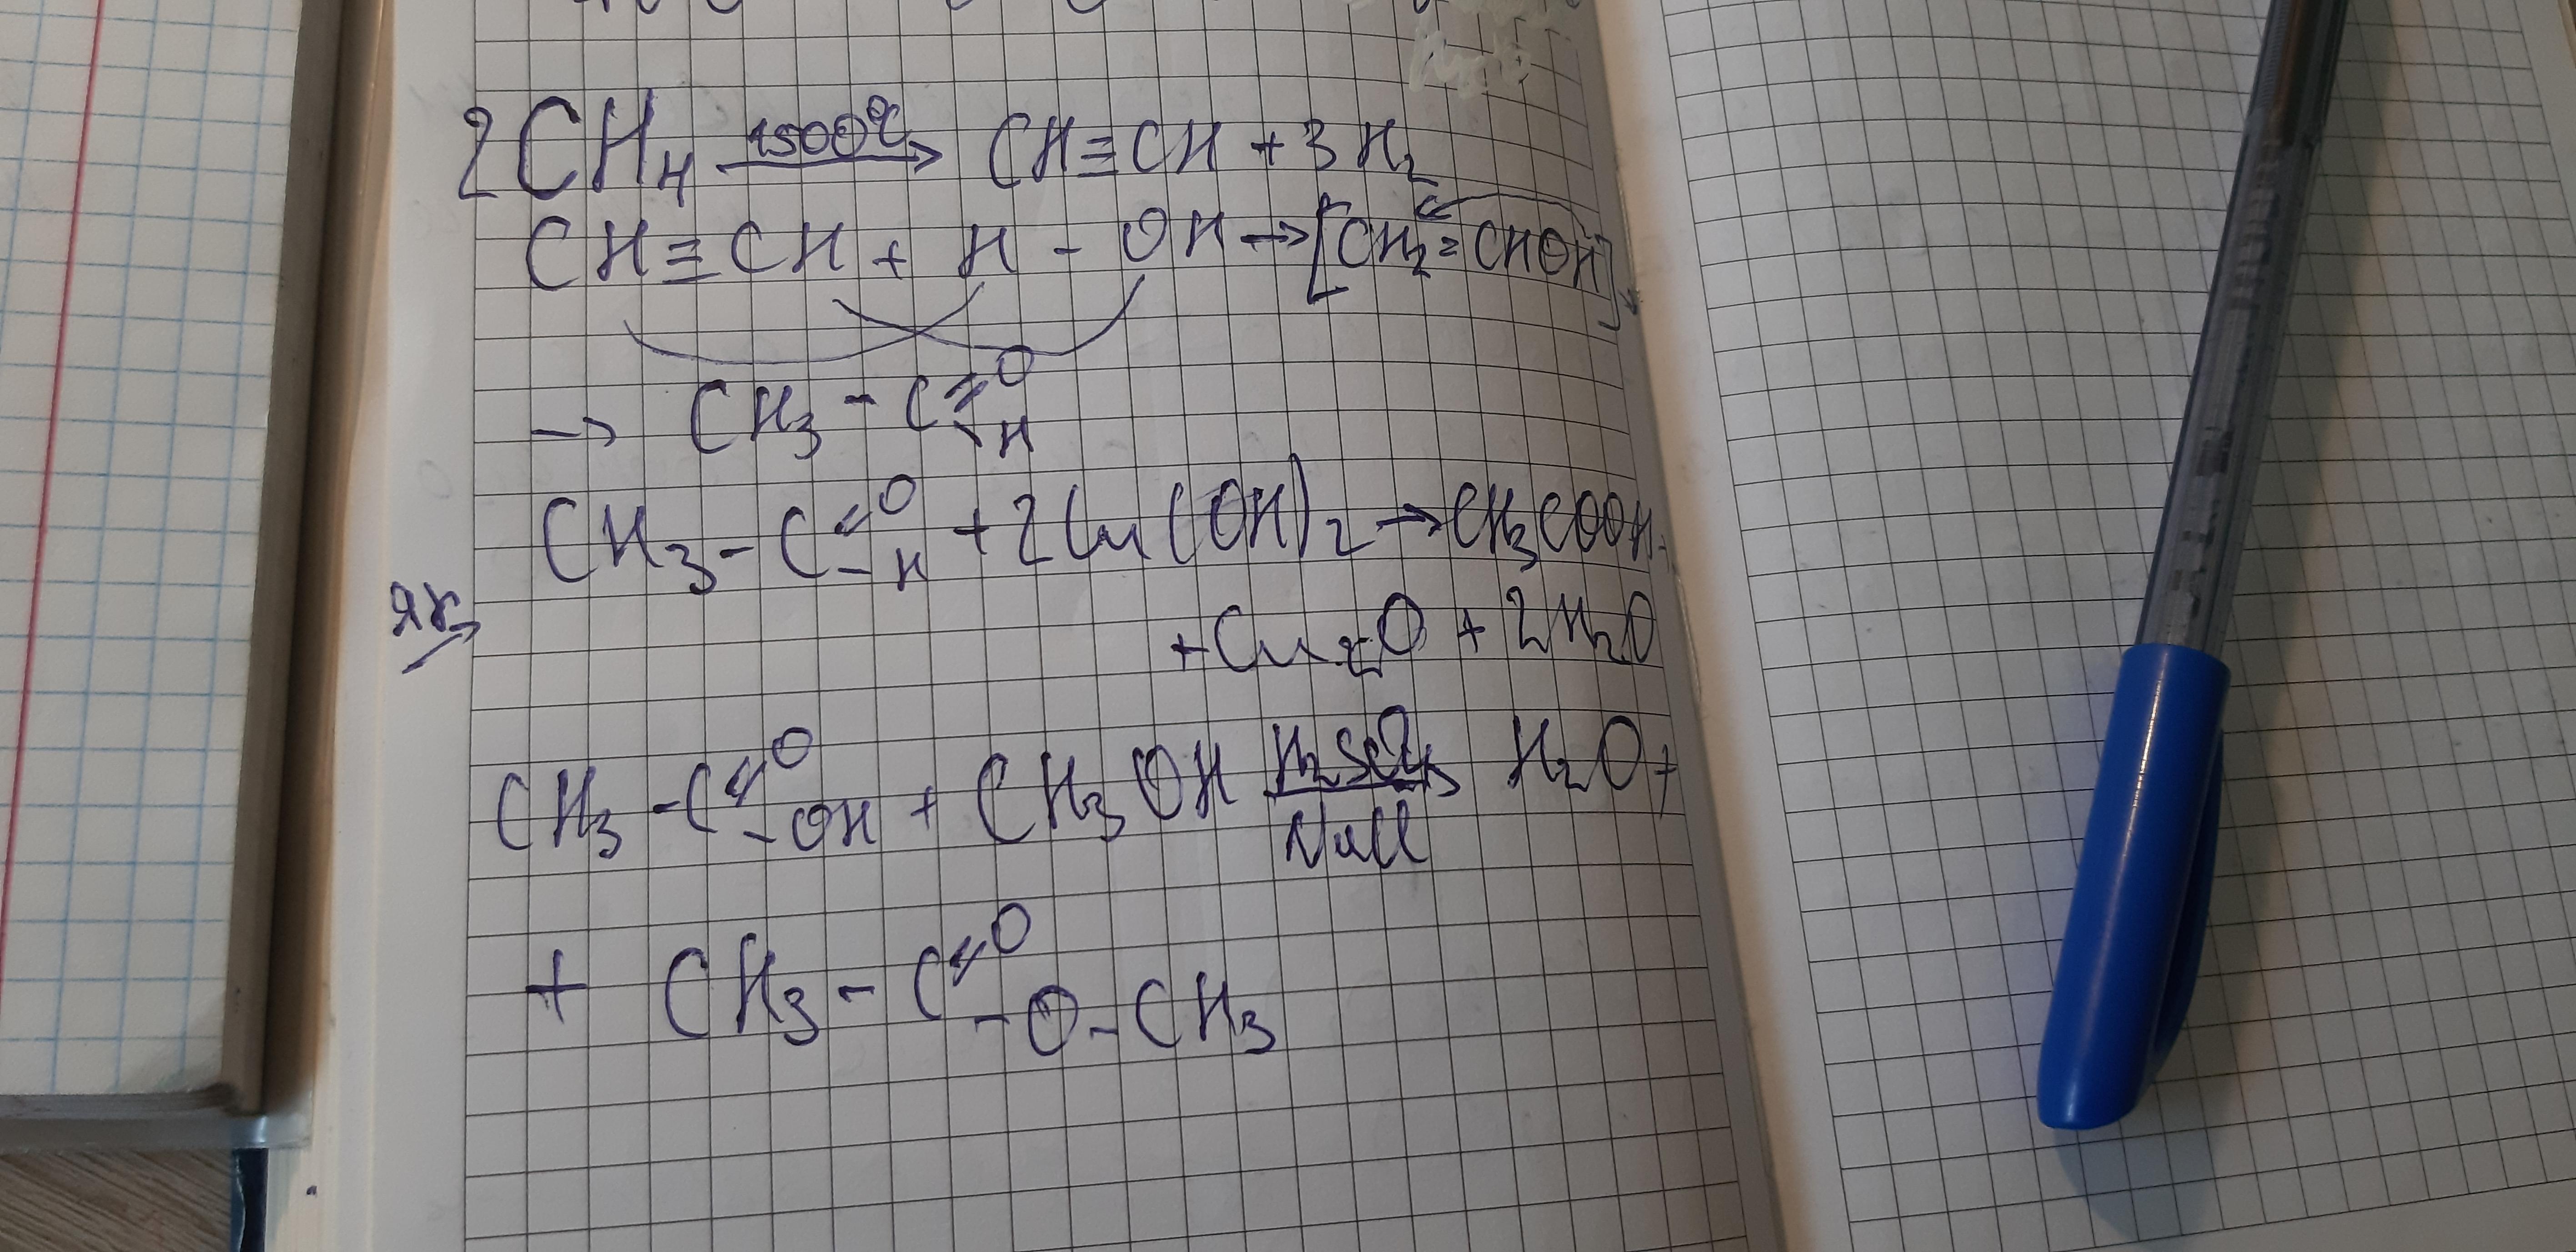 2CH₄ 1500°C → CH≡CH + 3H₂
CH≡CH + H - OH → [CH₂=CHOH]
→ CH₃ - C =O -H
CH₃ - C =O -H + 2Cu(OH)₂ → CH₃COOH
ЯК
+ Cu₂O + 2H₂O
CH₃ - C =O -OH + CH₃OH H₂SO₄ → H₂O +
+ CH₃ - C =O -O-CH₃